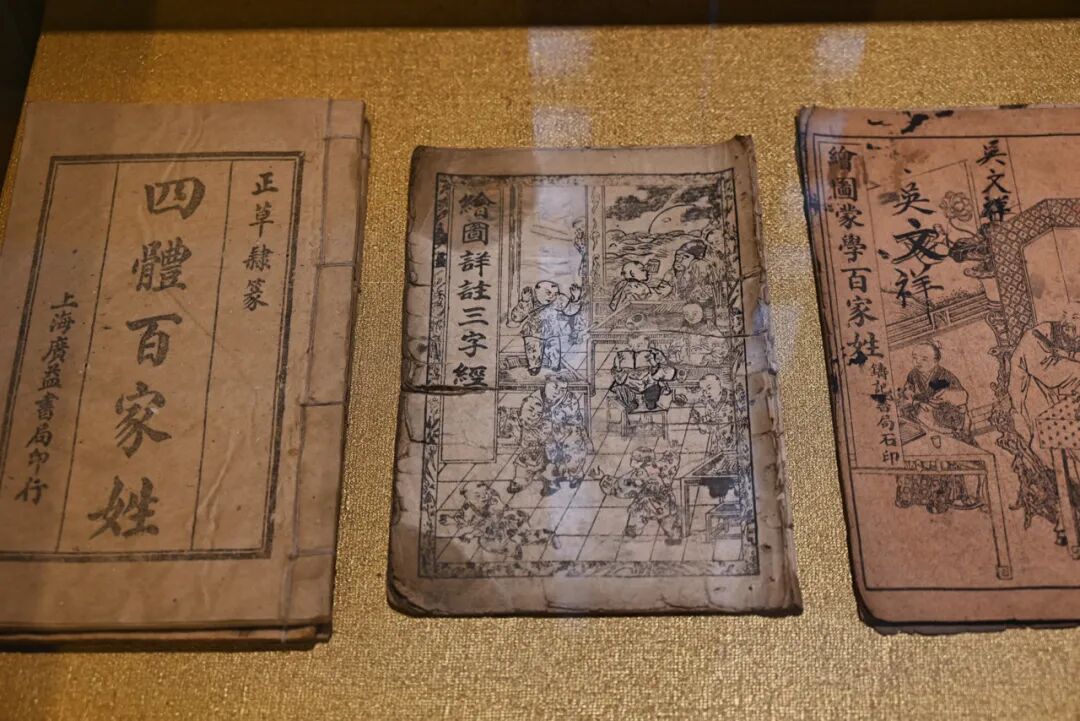 正草隸篆
四體百家姓
上海廣益書局印行
繪圖詳註三字經
吳文祥
吳文祥
繪圖蒙學百家姓
書局石印